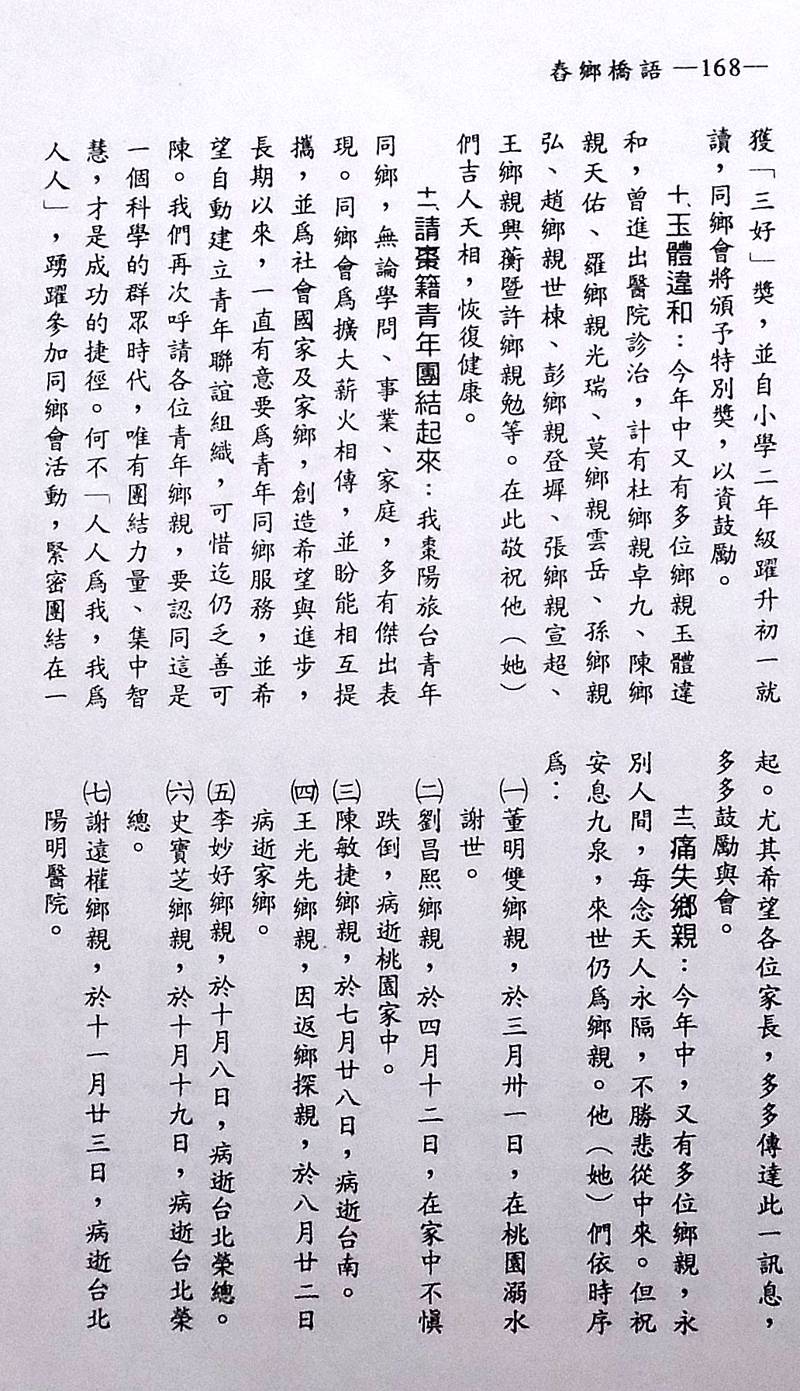 舂鄉橋語 —168—
獲「三好」獎，並自小學二年級躍升初一就
讀，同鄉會將頒予特別獎，以資鼓勵。
十、玉體違和：今年中又有多位鄉親玉體違
和，曾進出醫院診治，計有杜鄉親卓九、陳鄉
親天佑、羅鄉親光瑞、莫鄉親雲岳、孫鄉親
弘、趙鄉親世棟、彭鄉親登墀、張鄉親宣超、
王鄉親興蘅暨許鄉親勉等。在此敬祝他（她）
們吉人天相，恢復健康。
十一、請棗籍青年團結起來：我棗陽旅台青年
同鄉，無論學問、事業、家庭，多有傑出表
現。同鄉會爲擴大薪火相傳，並盼能相互提
攜，並爲社會國家及家鄉，創造希望與進步，
長期以來，一直有意要爲青年同鄉服務，並希
望自動建立青年聯誼組織，可惜迄仍乏善可
陳。我們再次呼請各位青年鄉親，要認同這是
一個科學的群眾時代，唯有團結力量、集中智
慧，才是成功的捷徑。何不「人人爲我，我爲
人人」，踴躍參加同鄉會活動，緊密團結在一
起。尤其希望各位家長，多多傳達此一訊息，
多多鼓勵與會。
十二、痛失鄉親：今年中，又有多位鄉親，永
別人間，每念天人永隔，不勝悲從中來。但祝
安息九泉，來世仍爲鄉親。他（她）們依時序
爲：
㈠董明雙鄉親，於三月卅一日，在桃園溺水
謝世。
㈡劉昌熙鄉親，於四月十二日，在家中不慎
跌倒，病逝桃園家中。
㈢陳敏捷鄉親，於七月廿八日，病逝台南。
㈣王光先鄉親，因返鄉探親，於八月廿二日
病逝家鄉。
㈤李妙好鄉親，於十月八日，病逝台北榮總。
㈥史寶芝鄉親，於十月十九日，病逝台北榮
總。
㈦謝遠權鄉親，於十一月廿三日，病逝台北
陽明醫院。